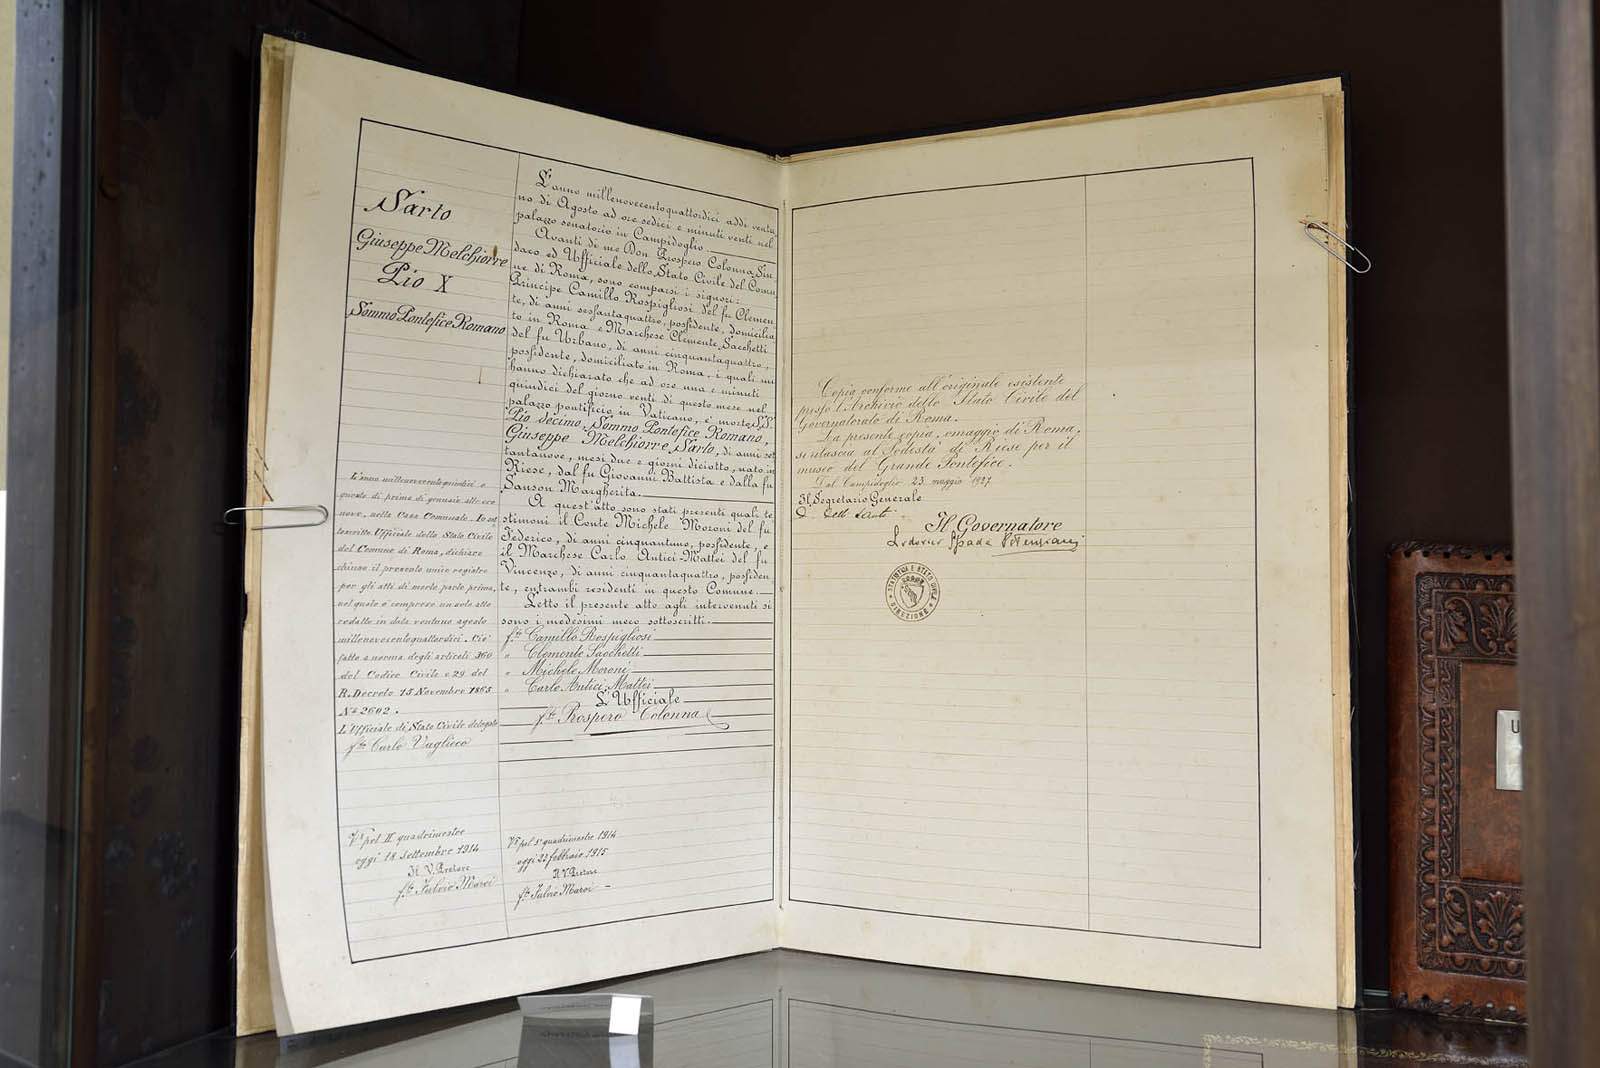 Sarto
Giuseppe Melchiorre
Pio X
Sommo Pontefice Romano
L'anno millenovecentoquindici e
questo dì primo di gennaio alle ore
nove, nella Casa Comunale. Io sot
toscritto Ufficiale dello Stato Civile
del Comune di Roma, dichiaro
chiuso il presente unico registro
per gli atti di morte parte prima,
nel quale è compreso un solo atto
redatto in data ventuno agosto
millenovecentoquattordici. Ciò
fatto a norma degli articoli 360
del Codice Civile e 29 del
R. Decreto 15 Novembre 1865
N° 2602.
L'Ufficiale di Stato Civile delegato
fto Carlo
Vto pel II quadrimestre
oggi 18 settembre 1914
Il V. Pretore
fto Fulvio Maroi
L'anno millenovecentoquattordici addì ventu
no di Agosto ad ore sedici e minuti venti nel
palazzo senatorio in Campidoglio
Avanti di me Don Prospero Colonna, Sin
daco ed Ufficiale dello Stato Civile del Comu
ne di Roma, sono comparsi i signori:
Principe Camillo Rospigliosi del fu Clemen
te, di anni sessantaquattro, possidente, domicilia
to in Roma e Marchese Clemente Sacchetti
del fu Urbano, di anni cinquantaquattro,
possidente, domiciliato in Roma, i quali mi
hanno dichiarato che ad ore una e minuti
quindici del giorno venti di questo mese nel
palazzo pontificio in Vaticano, è morto S.S.
Pio decimo, Sommo Pontefice Romano,
Giuseppe Melchiorre Sarto, di anni set
tantanove, mesi due e giorni diciotto, nato in
Riese, dal fu Giovanni Battista e dalla fu
Sanson Margherita.
A quest'atto sono stati presenti quali te
stimoni il Conte Michele Moroni del fu
Federico, di anni cinquantuno, possidente, e
il Marchese Carlo Antici-Mattei del fu
Vincenzo, di anni cinquantaquattro, possiden
te, entrambi residenti in questo Comune.
Letto il presente atto agli intervenuti si
sono i medesimi meco sottoscritti.
fto Camillo Rospigliosi
" Clemente Sacchetti
" Michele Moroni
" Carlo Antici-Mattei
L'Ufficiale
fto Prospero Colonna
Vto pel 3° quadrimestre 1914
oggi 22 febbraio 1915
Il V. Pretore
fto Fulvio Maroi
Copia conforme all'originale esistente
presso l'Archivio dello Stato Civile del
Governatorato di Roma.
La presente copia, omaggio di Roma,
si rilascia al Podestà di Riese per il
museo del Grande Pontefice.
Dal Campidoglio 23 maggio 1927
Il Segretario Generale
Il Governatore
Lodovico Spada Potenziani
STATISTICA E STATO CIVILE
DIREZIONE
U